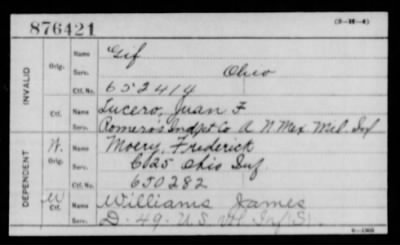 876421
(3-H-4)
INVALID
Orig.
Name Gif
Serv. Ohio
Ctf. No. 652414
Ctf.
Name Lucero, Juan F
Serv. Romero's Indpt Co A N Mex Mil. Inf
DEPENDENT
W. Orig.
Name Moery, Frederick
Serv. 6 25 Ohio Inf
Ctf. No. 650282
W Ctf.
Name Williams James
Serv. D. 49. U.S. Vol Inf (S).